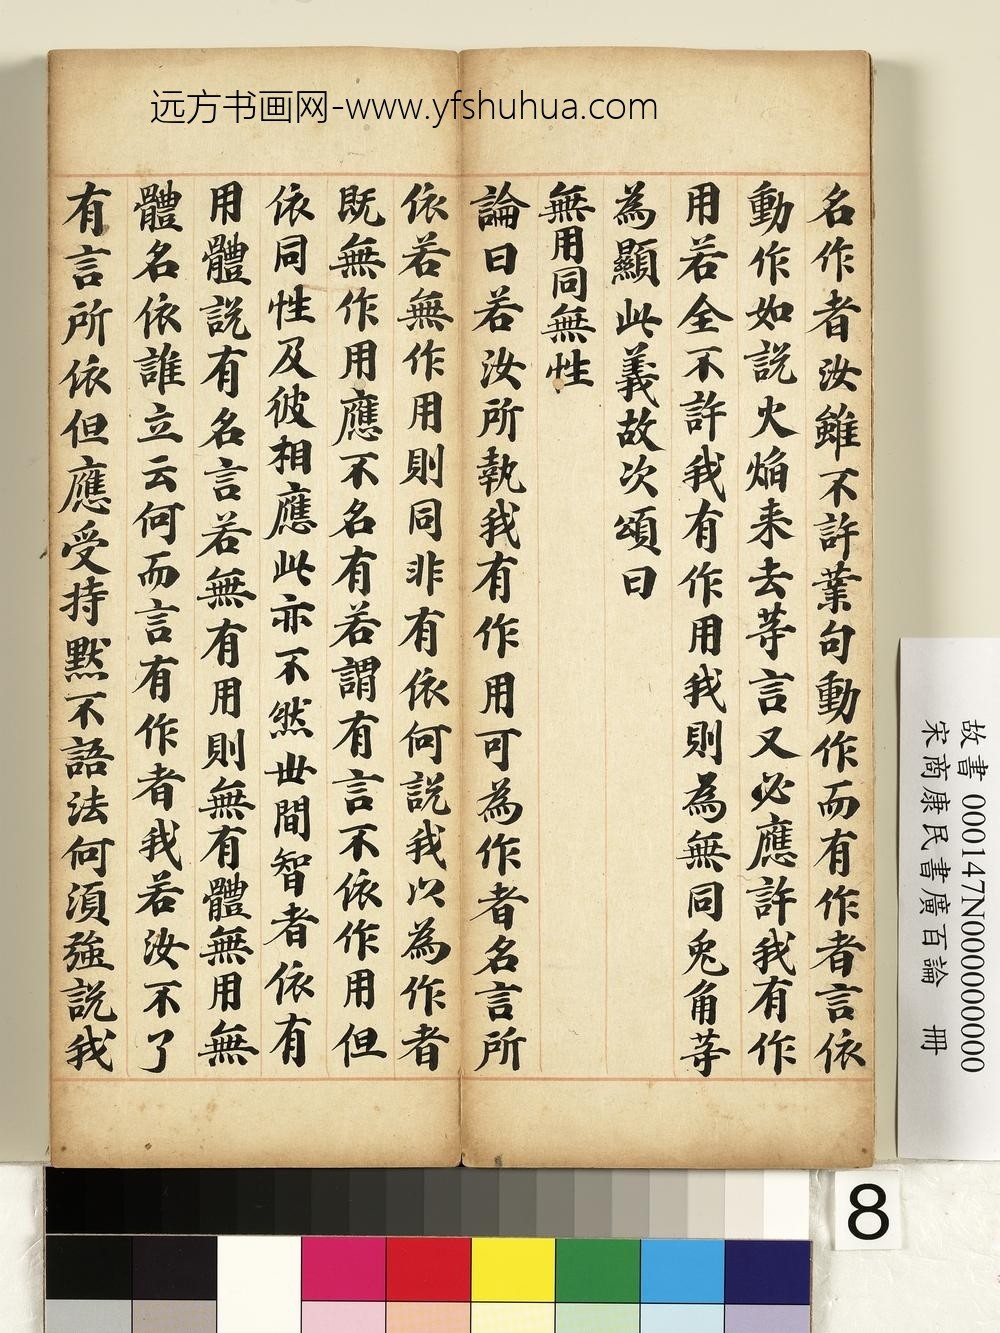 远方书画网-www.yfshuhua.com
名作者汝雖不許業句動作而有作者言依
動作如說火焰来去等言又必應許我有作
用若全不許我有作用我則為無同兔角等
為顯此義故次頌曰
無用同無性
論曰若汝所執我有作用可為作者名言所
依若無作用則同非有依何說我以為作者
既無作用應不名有若謂有言不依作用但
依同性及彼相應此亦不然世間智者依有
用體說有名言若無有用則無有體無用無
體名依誰立云何而言有作者我若汝不了
有言所依但應受持默不語法何須強說我
故書 000147N000000000
宋商康民書廣百論 冊
8